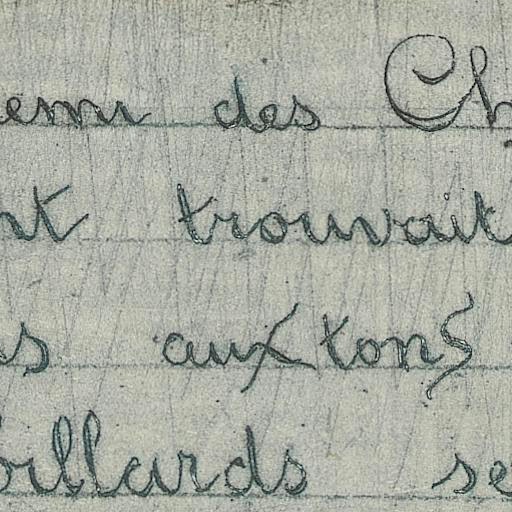 emi des Ch
nt trouvait
s aux tons
illards se